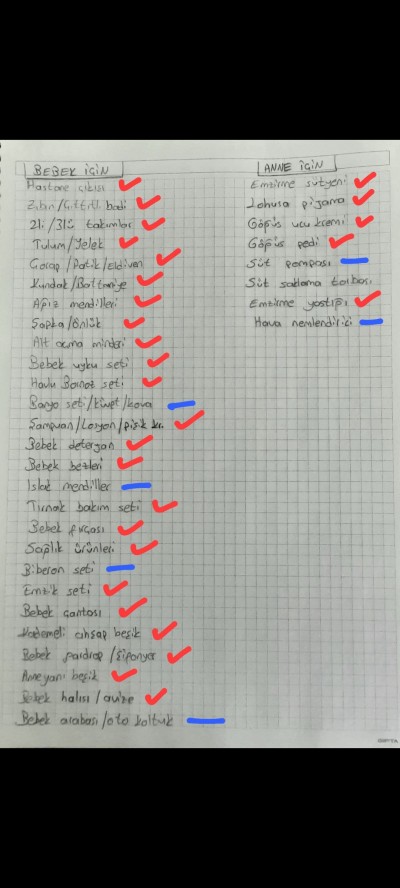 BEBEK İÇİN
Hastane çıkışı
Zıbın/Çıtçıtlı badi
2li/3lü takımlar
Tulum/Yelek
Çorap/Patik/Eldiven
Kundak/Battaniye
Ağız mendilleri
Şapka/Önlük
Alt açma minderi
Bebek uyku seti
Havlu Bornoz seti
Banyo seti/küvet/kova
Şampuan/Losyon/pişik kr.
Bebek deterjan
Bebek bezleri
Islak mendiller
Tırnak bakım seti
Bebek fırçası
Sağlık ürünleri
Biberon seti
Emzik seti
Bebek çantası
Kademeli ahşap beşik
Bebek gardrop/Şifonyer
Anneyanı beşik
Bebek halısı/avize
Bebek arabası/oto koltuk
ANNE İÇİN
Emzirme sütyeni
Lohusa pijama
Göğüs ucu kremi
Göğüs pedi
Süt pompası
Süt saklama torbası
Emzirme yastığı
Hava nemlendirici